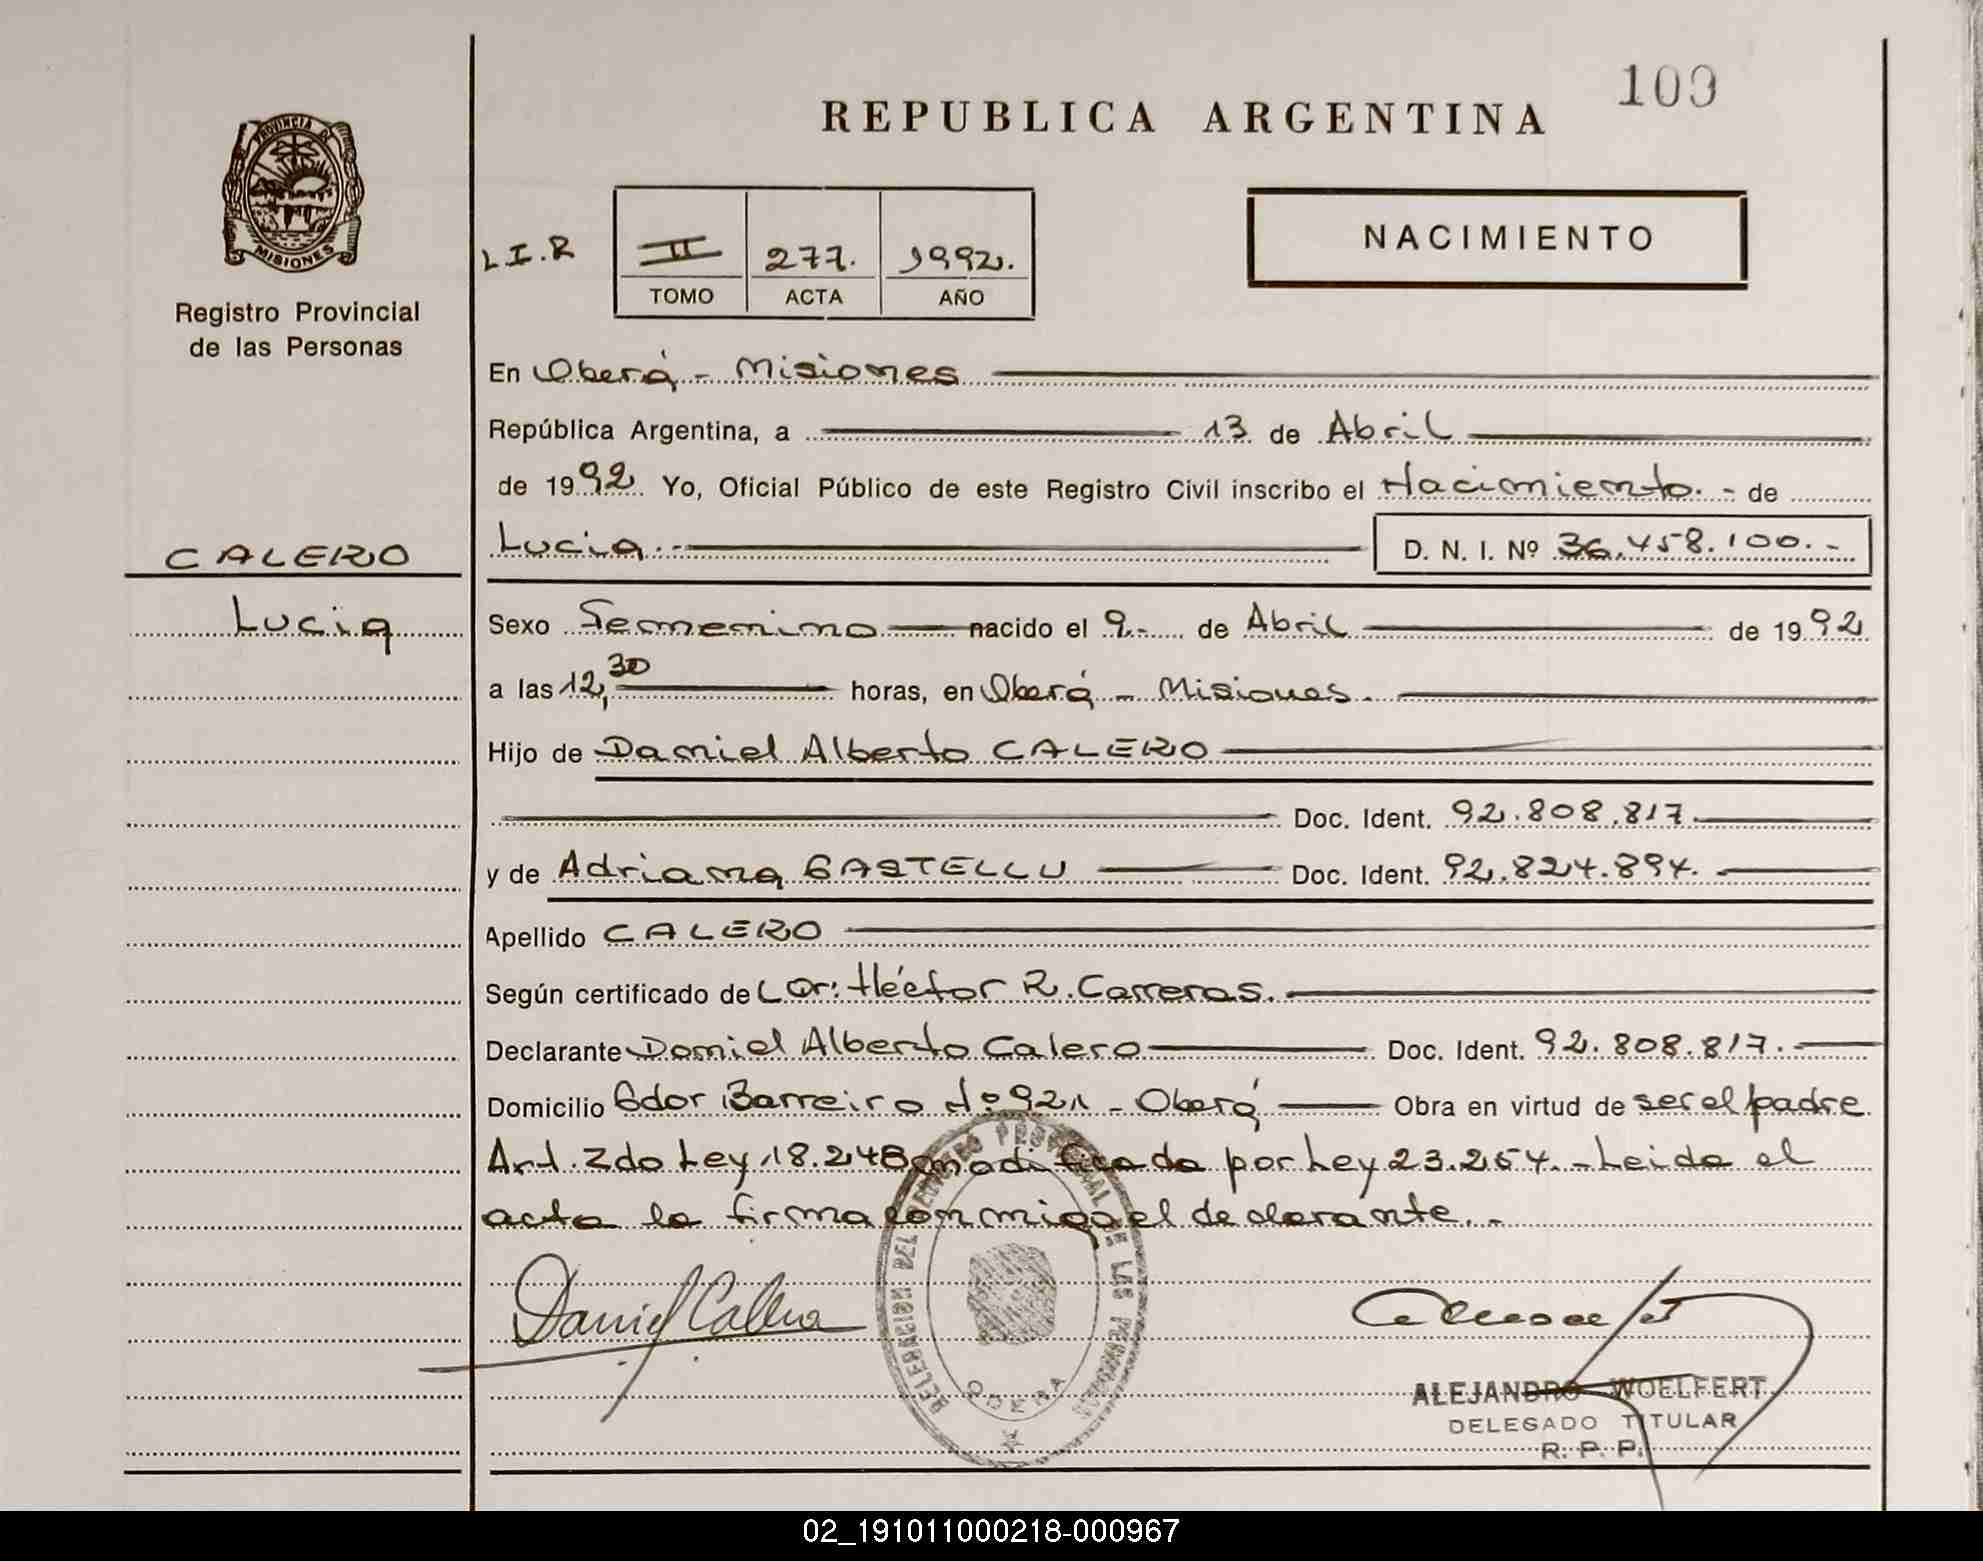 109
REPUBLICA ARGENTINA
PROVINCIA DE
MISIONES
Registro Provincial
de las Personas
L.I.R
II 277. 1992.
TOMO ACTA AÑO
NACIMIENTO
En Oberá - Misiones
República Argentina, a 13 de Abril
de 1992 Yo, Oficial Público de este Registro Civil inscribo el Nacimiento. - de
Lucia.- D. N. I. Nº 36.458.100.-
CALERO
Lucia
Sexo Femenino nacido el 9.- de Abril de 1992
a las 12,30 horas, en Oberá - Misiones.
Hijo de Daniel Alberto CALERO
Doc. Ident. 92.808.817.
y de Adriana GASTELLU Doc. Ident. 92.824.894.
Apellido CALERO
Según certificado de Dr: Héctor R. Carreras.
Declarante Daniel Alberto Calero Doc. Ident. 92.808.817.-
Domicilio Gdor Barreiro Nº 921 - Oberá Obra en virtud de ser el padre
Art. 2do Ley 18.248 modificada por Ley 23.264.- Leida el
acta la firma conmigo el declarante.-
Daniel Calero
DELEGACION DEL REGISTRO PROVINCIAL DE LAS PERSONAS
OBERA
ALEJANDRO WOELFERT
DELEGADO TITULAR
R. P. P.
02_191011000218-000967